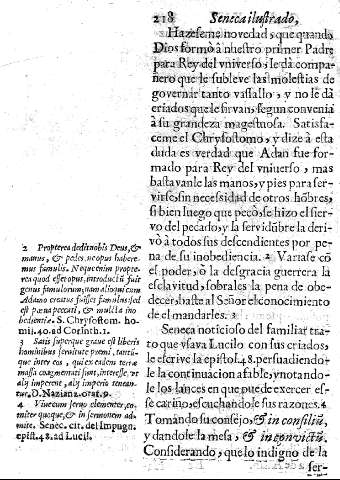 218 Seneca ilustrado,
Hazeseme novedad, que quando
Dios formò à nuestro primer Padre
para Rey del vniverso, le dà compa-
ñero que le subleve las molestias de
governar tanto vasallo, y no le dà
criados que le sirvan, segun convenia
à su grandeza magestuosa. Satisfa-
ceme el Chrysostomo, y dize à esta
duda es verdad que Adan fue for-
mado para Rey del vniverso, mas
bastavanle las manos, y pies para ser-
virse, sin necesidad de otros hõbres,
si bien luego que pecò, se hizo el sier-
vo del pecado, y la servidũbre la deri-
vò à todos sus descendientes por pe-
na de su inobediencia. 2 Variase cõ
el poder, ò la desgracia guerrera la
esclavitud, sobrales la pena de obe-
decer, hasta al Señor el conocimiento
de el mandarles. 3
Seneca noticioso del familiar tra-
to que vsava Lucilo con sus criados,
le escrive la epistol. 48. persuadiendo-
le la continuacion afable, y notando-
le los lances en que puede exercer es-
se cariño, escuchandole sus razones. 4
Tomando su consejo, & in consiliũ,
y dandole la mesa, & in convictũ.
Considerando, que lo indigno de la
ser-
2 Propterea dedit nobis Deus, &
manus, & pedes, ne opus habere-
mus famulis. Neque enim propte-
rea quod esset opus, introductũ fuit
genus famulorum; nam alioqui cum
Adamo creatus fuisset famulus, sed
est pœna peccati, & mulcta ino-
bedientiæ. S. Chrysostom. ho-
mil. 40. ad Corinth. 1.
3 Satis superque grave est liberis
hominibus servitute premi, tantũ-
que inter eos, qui ex eadem terræ
massa coagmentati sunt, interesse, vt
alij imperent, alij imperio tenean-
tur. D. Nazianz. orat. 9.
4 ter queque, & in sermonem ad-
mitte. Senec. cit. del Impugn.
epist. 48. ad Lucil.